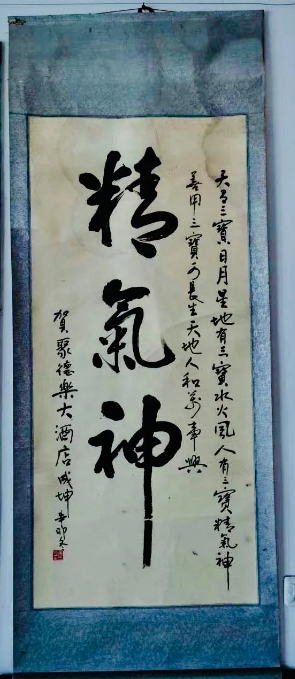 天有三寶日月星地有三寶水火風人有三寶精氣神
善用三寶可長生天地人和萬事興
精氣神
賀聚德樂大酒店成坤辛卯冬